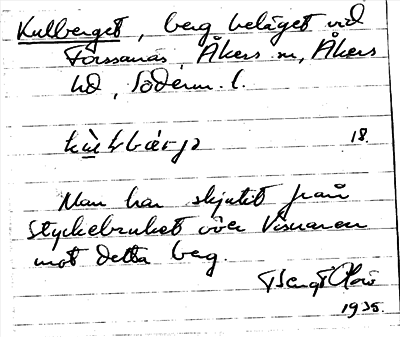 Kulberget, berg beläget vid
Forssanäs, Åkers sn, Åkers
hd, Söderm. l.
18.
Man har skjutit från
styckebruket över Visnaren
mot detta berg.
Bengt
1935.